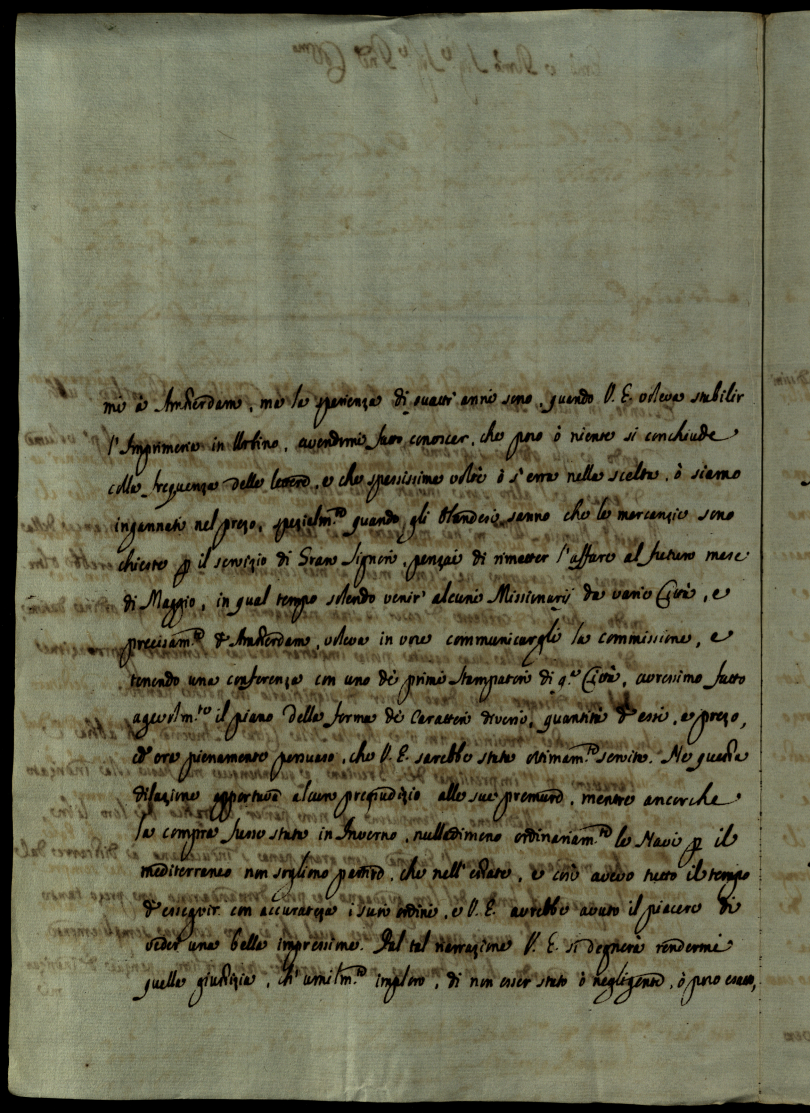 mi à Amsterdam, ma la sperienza di quattr'anni sono, quando V. E. voleva stabilir
l'Imprimeria in Urbino, avendomi fatto conoscer, che poco ò niente si conchiude
colla frequenza delle lettere, e che spessissime volte ò s'erra nella scelta, ò siamo
ingannati nel prezo, spezialm.te quando gli Olandesi sanno che le mercanzie sono
chieste p il servizio di Gran Signori, pensai di rimetter l'affare al futuro mese
di Maggio, in qual tempo solendo venir' alcuni Missionarij da varie Città, e
precisam.te d'Amsterdam, voleva in voce communicargli la commissione, e
tenendo una conferenza con uno de primi Stampatori di q.ta Città, avressimo fatto
agevolm.te il piano della forma de Caratteri diversi, quantità d'essi, e prezo,
ed ero pienamente persuaso, che V. E. sarebbe stata ottimam.te servita. Ne questa
dilazione apportava alcun pregiudizio alle sue premure, mentre ancorche
la compra fusse stata in Inverno, nulladimeno ordinariam.te le Navi p il
mediterraneo non sogliono partire, che nell'estate, e così avevo tutto il tempo
d'esseguir con accuratezza i suoi ordini, e V. E. avrebbe avuto il piacere di
veder una bella impressione. Dal tal narrazione V. E. si degnerà rendermi
quella giustizia, ch'umilm.te imploro, di non esser stato ò negligente, ò poco esatto,